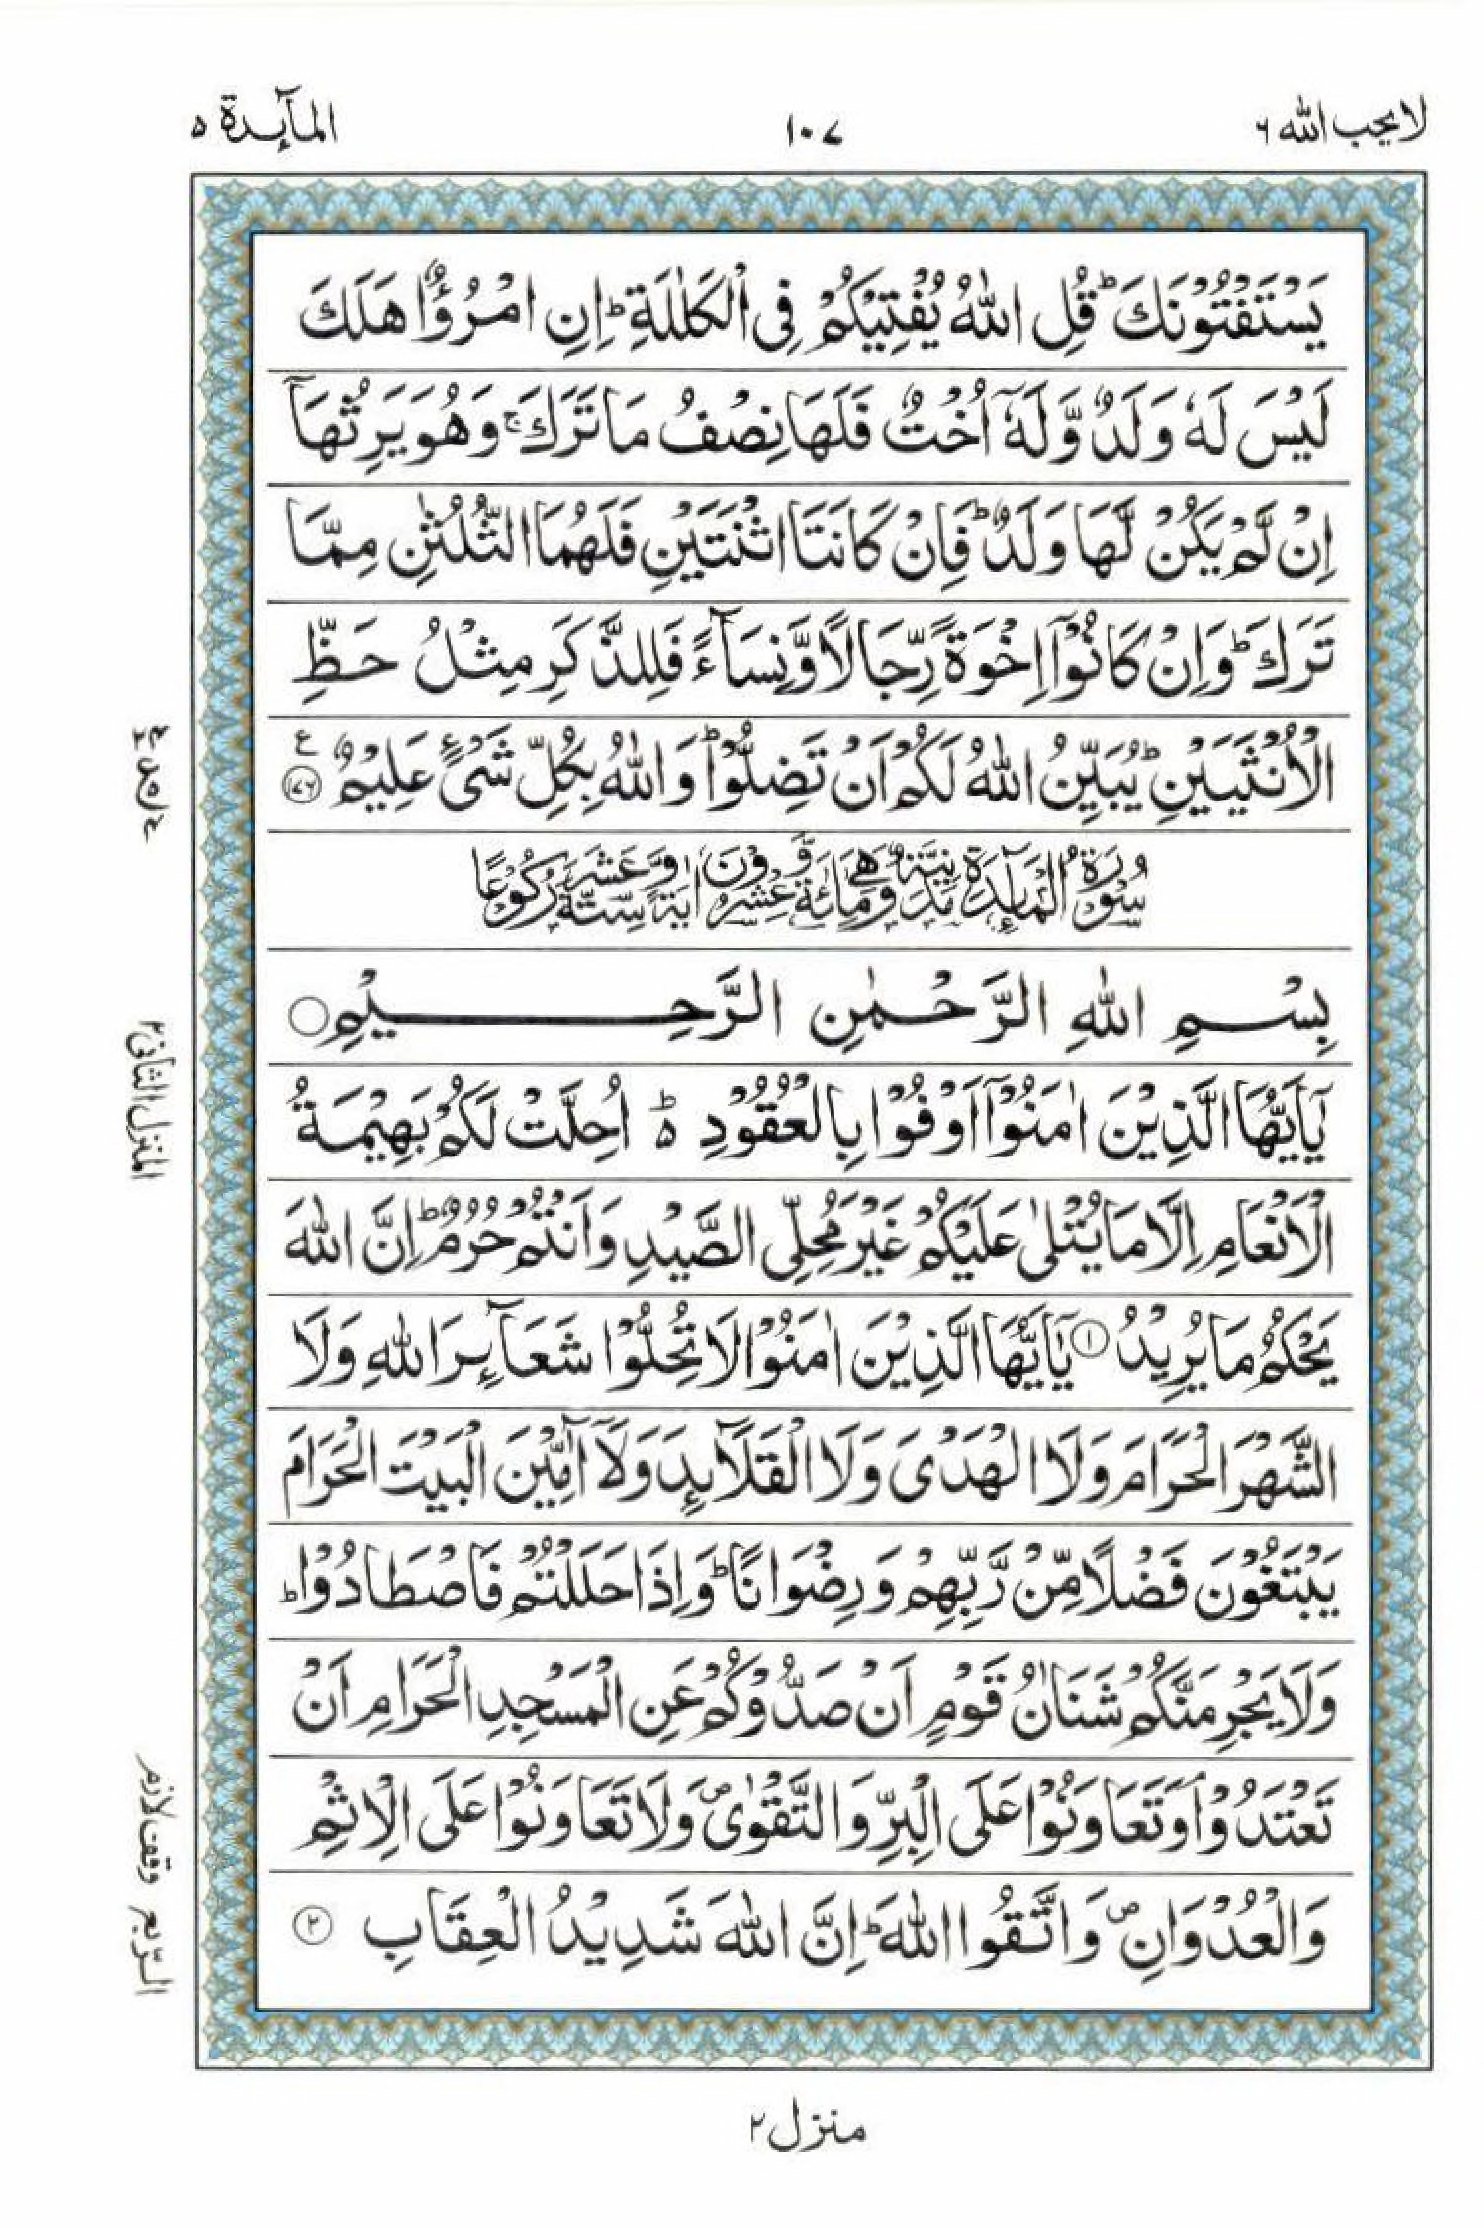 لا يحب الله ٦
١٠٧
المآئدة ٥
يَسْتَفْتُوْنَكَ ؕ قُلِ اللّٰهُ يُفْتِيْكُمْ فِى الْكَلٰلَةِ ؕ اِنِ امْرُؤٌا هَلَكَ
لَيْسَ لَهٗ وَلَدٌ وَّلَهٗۤ اُخْتٌ فَلَهَا نِصْفُ مَا تَرَكَ ۚ وَهُوَ يَرِثُهَاۤ
اِنْ لَّمْ يَكُنْ لَّهَا وَلَدٌ ؕ فَاِنْ كَانَتَا اثْنَتَيْنِ فَلَهُمَا الثُّلُثٰنِ مِمَّا
تَرَكَ ؕ وَاِنْ كَانُوْۤا اِخْوَةً رِّجَالًا وَّنِسَآءً فَلِلذَّكَرِ مِثْلُ حَظِّ
الْاُنْثَيَيْنِ ؕ يُبَيِّنُ اللّٰهُ لَكُمْ اَنْ تَضِلُّوْا ؕ وَاللّٰهُ بِكُلِّ شَىْءٍ عَلِيْمٌ ع ﴿١٧٦﴾
سُوْرَةُ الْمَآئِدَةِ مَدَنِيَّةٌ وَّهِيَ مِائَةٌ وَّعِشْرُوْنَ اٰيَةً وَّسِتَّةَ عَشَرَ رُكُوْعًا
بِسْمِ اللّٰهِ الرَّحْمٰنِ الرَّحِيْمِ ○
يٰۤاَيُّهَا الَّذِيْنَ اٰمَنُوْۤا اَوْفُوْا بِالْعُقُوْدِ ؕ اُحِلَّتْ لَكُمْ بَهِيْمَةُ
الْاَنْعَامِ اِلَّا مَا يُتْلٰى عَلَيْكُمْ غَيْرَ مُحِلِّى الصَّيْدِ وَاَنْتُمْ حُرُمٌ ؕ اِنَّ اللّٰهَ
يَحْكُمُ مَا يُرِيْدُ ﴿١﴾ يٰۤاَيُّهَا الَّذِيْنَ اٰمَنُوْا لَا تُحِلُّوْا شَعَآئِرَ اللّٰهِ وَلَا
الشَّهْرَ الْحَرَامَ وَلَا الْهَدْىَ وَلَا الْقَلَآئِدَ وَلَاۤ آٰمِّيْنَ الْبَيْتَ الْحَرَامَ
يَبْتَغُوْنَ فَضْلًا مِّنْ رَّبِّهِمْ وَرِضْوَانًا ؕ وَاِذَا حَلَلْتُمْ فَاصْطَادُوْا ؕ
وَلَا يَجْرِمَنَّكُمْ شَنَاٰنُ قَوْمٍ اَنْ صَدُّوْكُمْ عَنِ الْمَسْجِدِ الْحَرَامِ اَنْ
تَعْتَدُوْا ۘ وَتَعَاوَنُوْا عَلَى الْبِرِّ وَالتَّقْوٰى ۪ وَلَا تَعَاوَنُوْا عَلَى الْاِثْمِ
وَالْعُدْوَانِ ۪ وَاتَّقُوا اللّٰهَ ؕ اِنَّ اللّٰهَ شَدِيْدُ الْعِقَابِ ﴿٢﴾
المنزل الثانى ٢
الربع
وقف لازم
منزل ٢